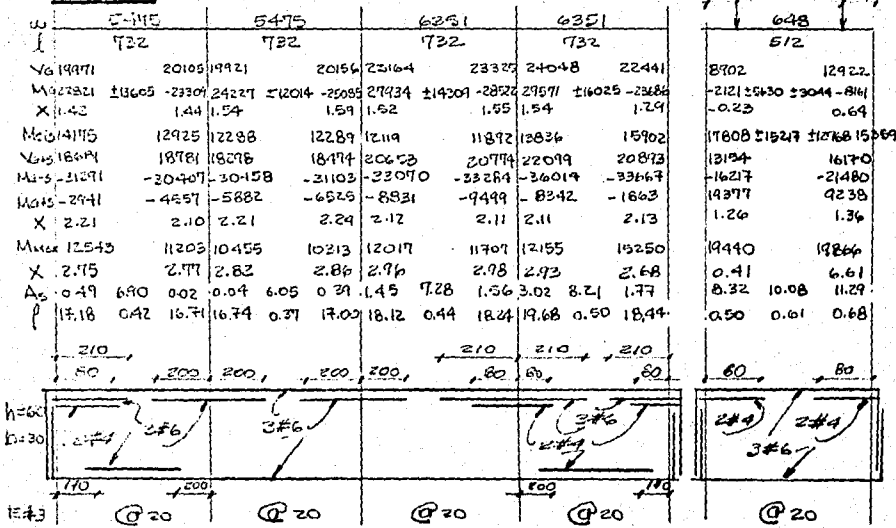 ω 5475 5475 6251 6351 648
l 732 732 732 732 512
Vo 19971 20105 19921 20156 23164 23325 24048 22441 8902 12922
Mo 22821 ±13605 -23309 24227 ±12014 -25085 27934 ±14309 -28522 29571 ±16025 -23686 -2121 ±5630 ±3044 -8161
X 1.42 1.44 1.54 1.59 1.52 1.55 1.54 1.29 -0.23 0.64
14175 12925 12288 12289 12119 11892 13836 15902 17808 ±15217
18781 18298 18474 20653 20774 22099 20893 13154 16170
-31291 -30407 -30158 -31103 -33070 -33284 -36019 -33667 -16217 -21480
-2941 -4557 -5882 -6525 -8931 -9499 -8342 -1863 19377 9238
X 2.21 2.10 2.21 2.24 2.12 2.11 2.11 2.13 1.26 1.36
Mmax 12543 11203 10455 10313 12017 11707 12155 15250 19440 19866
X 2.75 2.77 2.82 2.86 2.96 2.98 2.93 2.68 0.41 6.61
As 0.49 6.90 0.02 0.04 6.05 0.39 1.45 7.28 1.56 3.02 8.21 1.77 8.32 10.08 11.29
ρ 17.18 0.42 16.71 16.74 0.37 17.09 18.12 0.44 18.24 19.68 0.50 18.44 0.50 0.61 0.68
210 210 210 210
80 200 200 200 200 80 80 80 80 80
h=60
b=30
2#4 3#6 3#6 3#6 2#4 2#4 2#4
3#6
170 200 200 170
E#3 @20 @20 @20 @20 @20